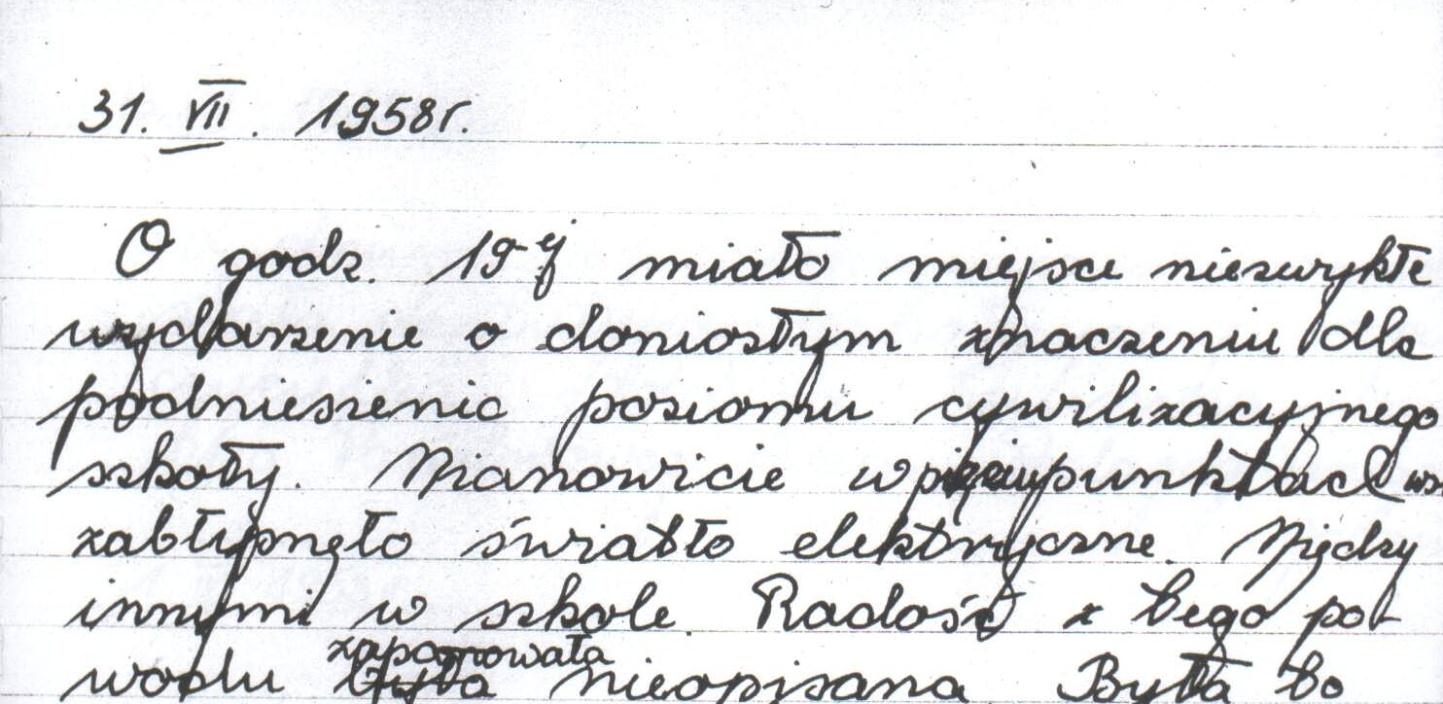 31. VII. 1958r.
O godz. 19-ej miało miejsce niezwykłe
wydarzenie o doniosłym znaczeniu dla
podniesienia poziomu cywilizacyjnego
szkoły. Mianowicie w punktach
zabłysnęło światło elektryczne. Między
innymi w szkole. Radość z tego po-
wodu zapanowała nieopisana Była to